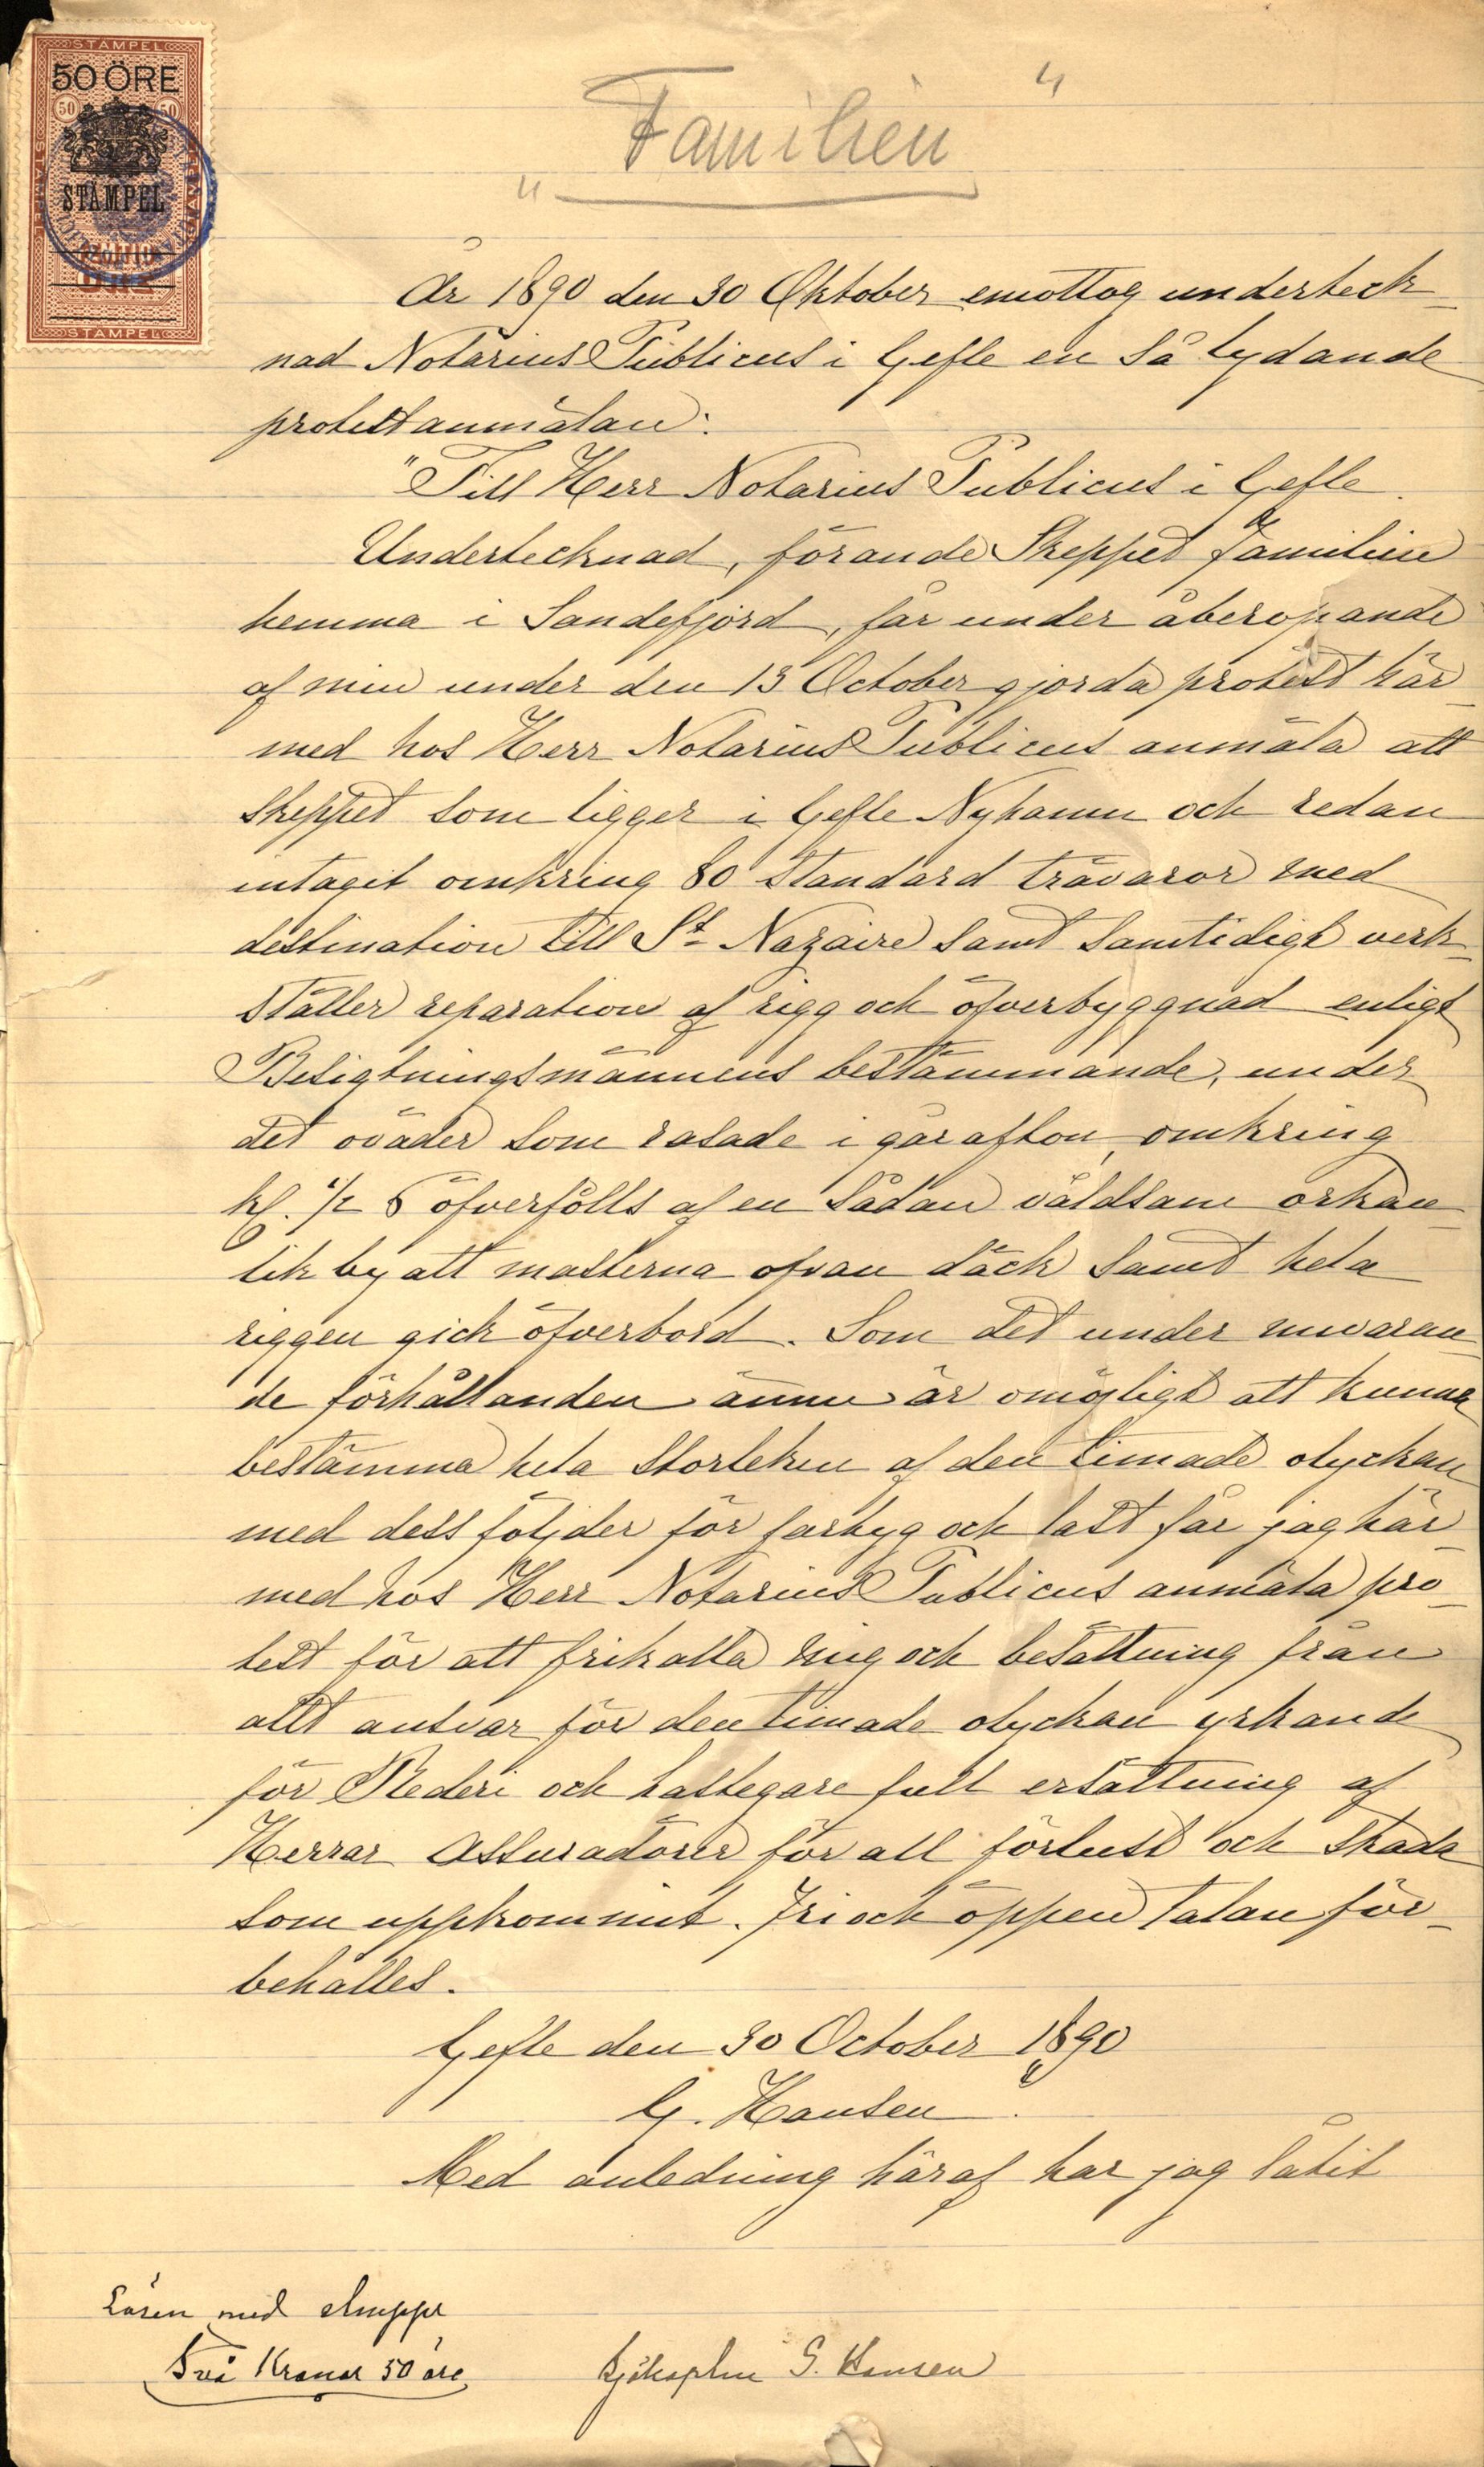 STAMPEL
50 ÖRE
50 50
STÄMPEL
STAMPEL
"Familien"
År 1890 den 30 Oktober emottog underteck-
nad Notarius Publicus i Gefle en så lydande
protestanmälan:
"Till Herr Notarius Publicus i Gefle.
Undertecknad, förande Skeppet Familien
hemma i Sandefjord, får under åberopande
af min under den 13 October gjorda protest här-
med hos Herr Notarius Publicus anmäla att
Skeppet som ligger i Gefle Nyhamn och redan
intagit omkring 80 Standard trävaror med
destination till St Nazaire samt samtidigt verk-
ställer reparation af rigg och öfverbyggnad enligt
Besigtningsmännens bestämmande, under
det oväder som rasade i går afton, omkring
kl. 1/2 6 öfverfölls af en sådan våldsam orkan-
lik by att masterna ofvan däck samt hela
riggen gick öfverbord. Som det under nuvaran-
de förhållanden ännu är omöjligt att kunna
bestämma hela Storleken af den timade olyckan
med dess följder för fartyg och last får jag här-
med hos Herr Notarius Publicus anmäla pro-
test för att frikalla mig och besättning från
allt ansvar för den timade olyckan yrkande
för Rederi och Lastegare full ersättning af
Herrar Assuradörer för all förlust och skada
som uppkommit. Fri och öppen talan för-
behålles.
Gefle den 30 October 1890
G. Hansen"
Med anledning häraf har jag låtit
Lösen med
Två Kronor 50 öre
G. Hansen